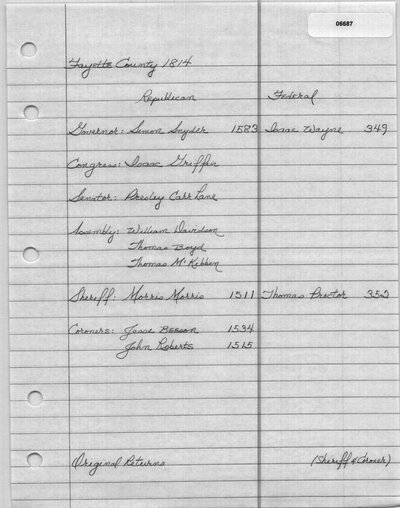 06687
Fayette County 1814
Republican Federal
Governor: Simon Snyder 1583 Isaac Wayne 349
Congress: Isaac Griffin
Senator: Presley Carr Lane
Assembly: William Davidson
Thomas Boyd
Thomas McKibben
Sheriff: Morris Morris 1511 Thomas Proctor 352
Coroners: Jesse Beeson 1534
John Roberts 1515
Original Returns (Sheriff & Coroner)